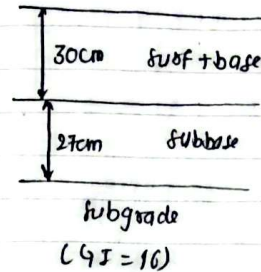 30cm surf+base
27cm subbase
subgrade
(GI=16)